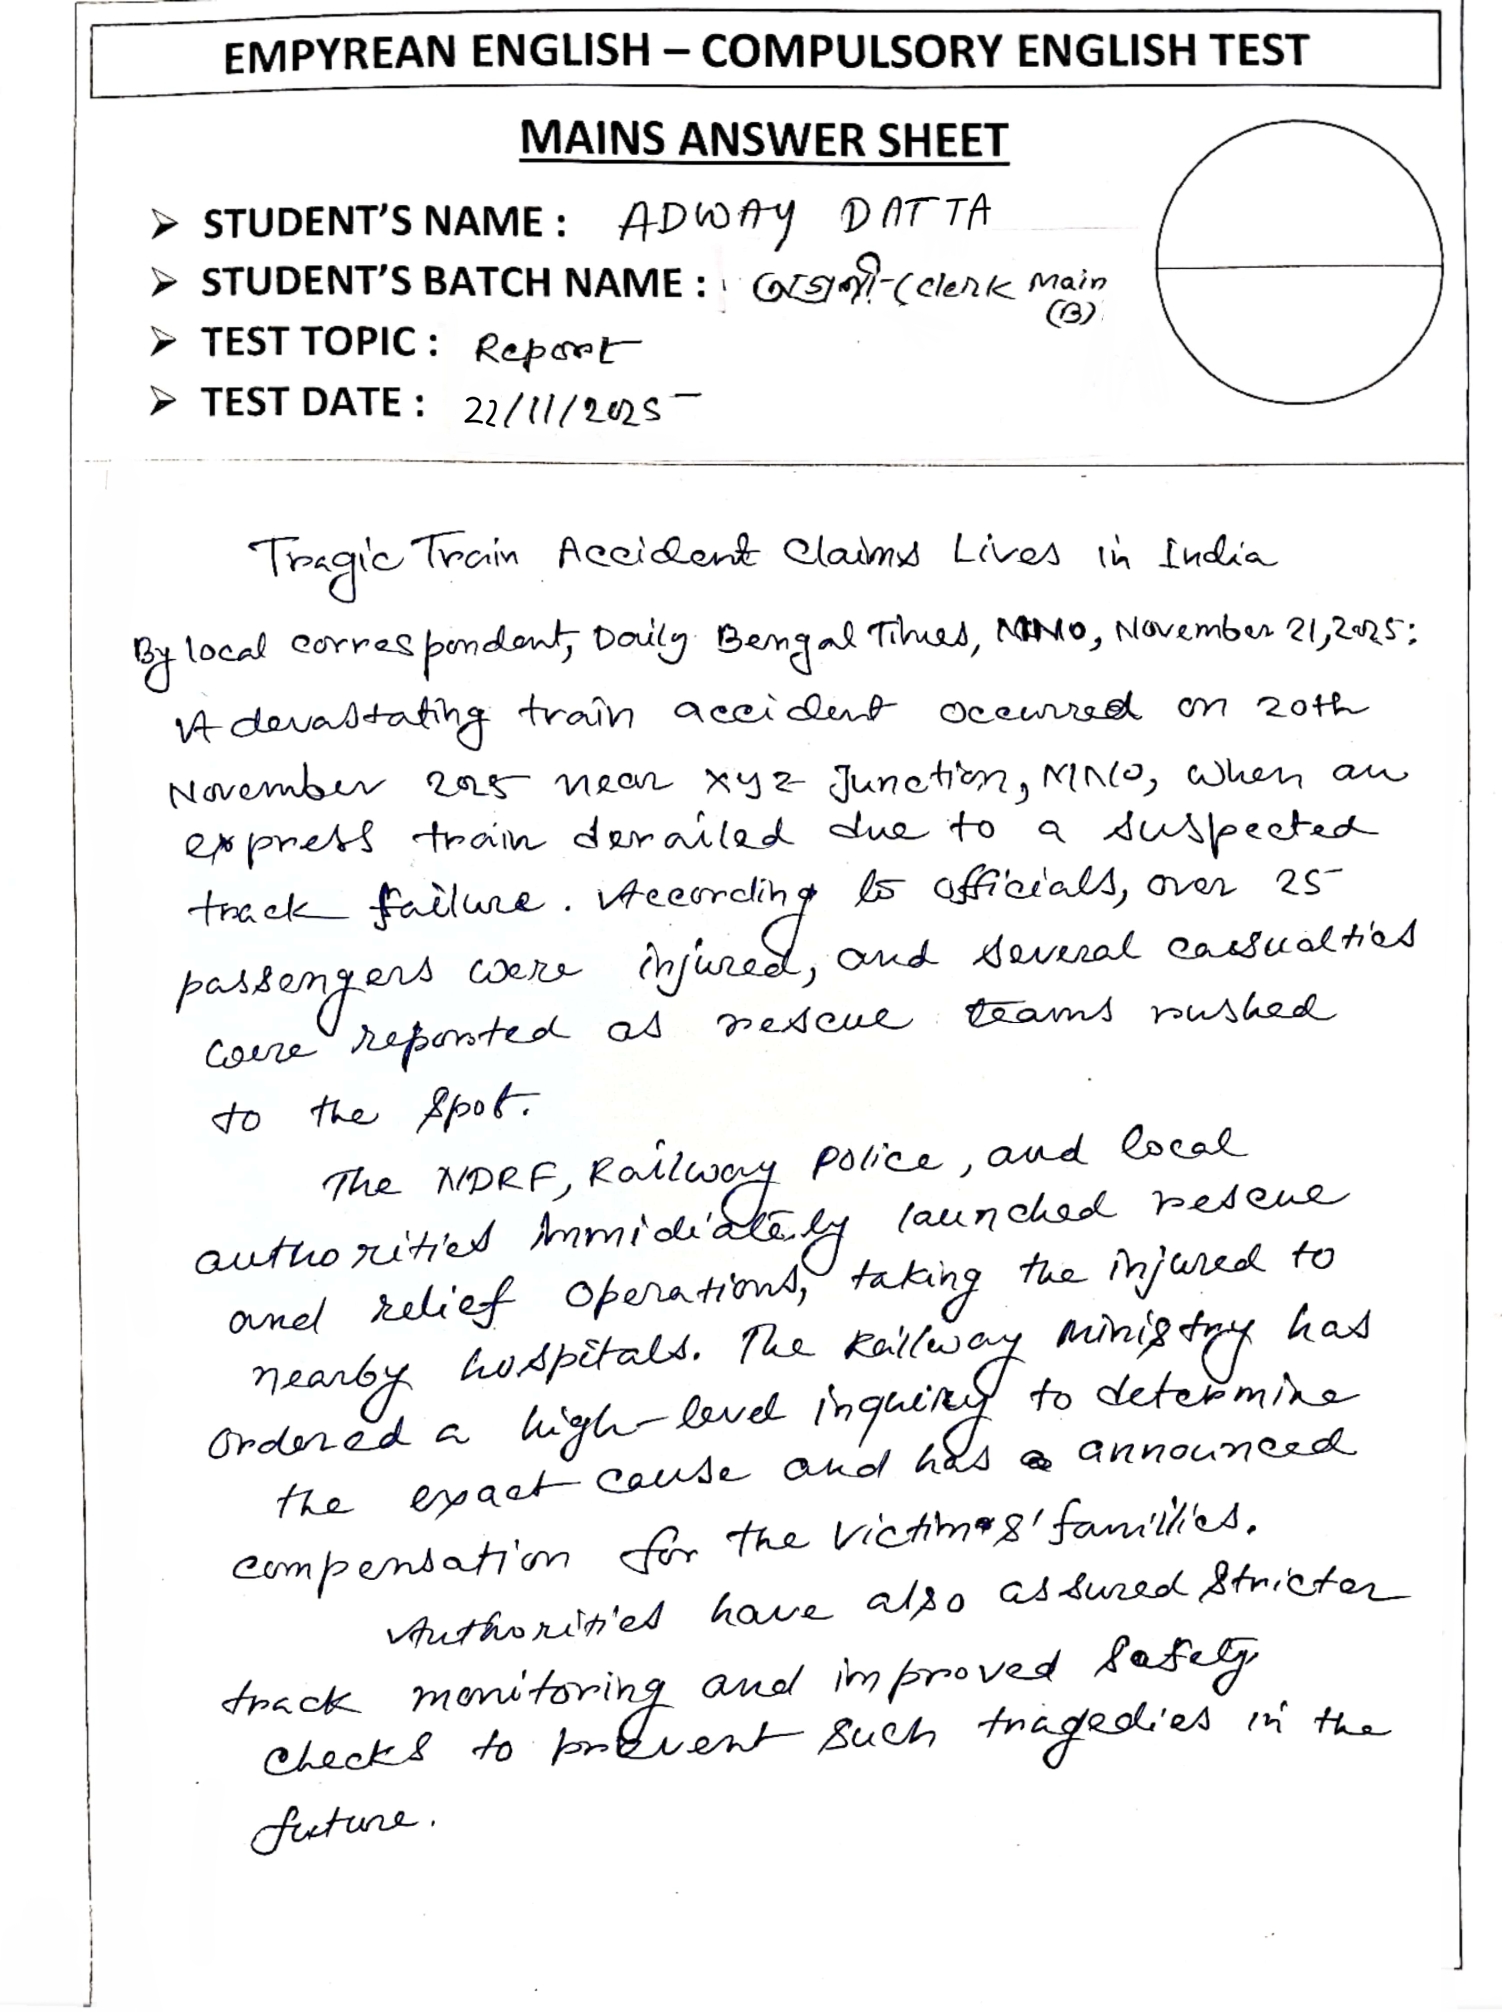 EMPYREAN ENGLISH – COMPULSORY ENGLISH TEST
MAINS ANSWER SHEET
➢ STUDENT'S NAME : ADWAY DATTA
➢ STUDENT'S BATCH NAME : -(Clerk Main
(B)
➢ TEST TOPIC : Report
➢ TEST DATE : 22/11/2025
Tragic Train Accident Claims Lives in India
By local correspondent, Daily Bengal Times, MNO, November 21, 2025:
A devastating train accident occurred on 20th
November 2025 near xyz Junction, MNO, when an
express train derailed due to a suspected
track failure. According to officials, over 25
passengers were injured, and several cassualties
were reported as rescue teams rushed
to the spot.
The NDRF, Railway police, and local
authorities immidiately launched rescue
and relief operations, taking the injured to
nearby hospitals. The Railway ministry has
ordered a high-level inquiry to determine
the exact cause and has announced
compensation for the victims' families.
Authorities have also assured stricter
track monitoring and improved safety
checks to prevent such tragedies in the
future.